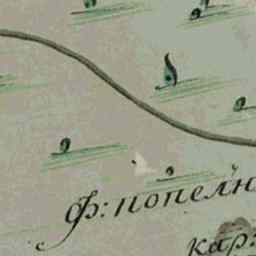 ф: попелн
кар: